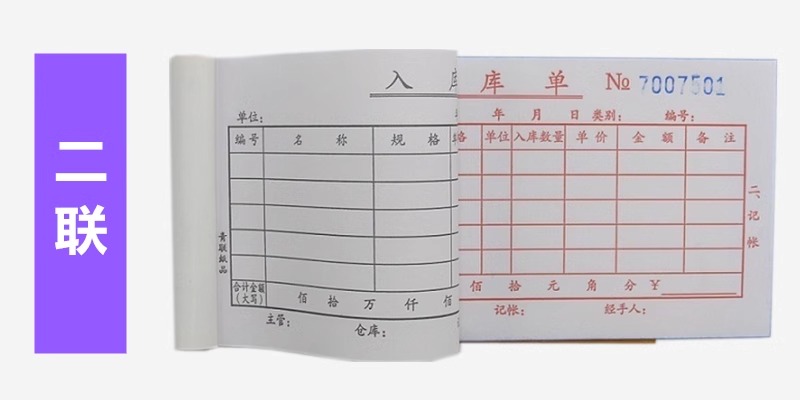 二
联
入 库 库 单 № 7007501
单位： 年 月 日 类别： 编号：
编号 名 称 规 格 格 单位 入库数量 单 价 金 额 备 注
二、记帐
青联纸品
合计金额（大写） 佰 拾 万 仟 佰 佰 拾 元 角 分 ￥
主管： 仓库： 记帐： 经手人：